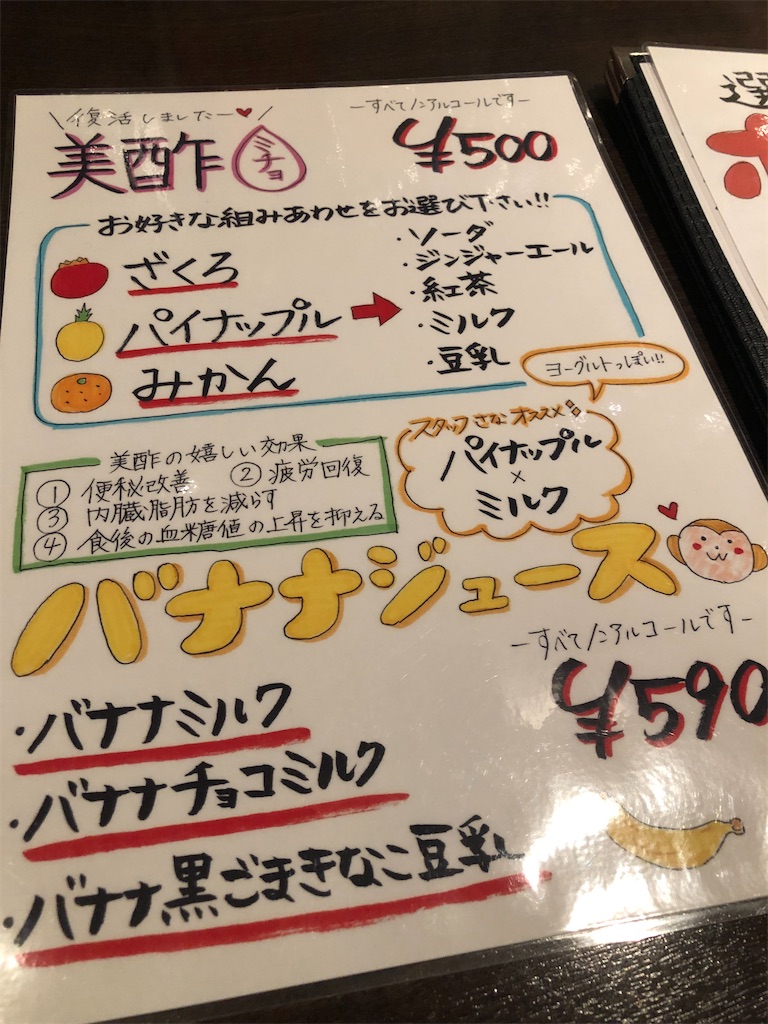 \復活しましたー♥/
ーすべてノンアルコールですー
美酢 ミチョ
¥500
お好きな組みあわせをお選び下さい!!
ざくろ
パイナップル
みかん
・ソーダ
・ジンジャーエール
・紅茶
・ミルク
・豆乳
ヨーグルトっぽい!!
スタッフさなオススメ
パイナップル
×
ミルク
美酢の嬉しい効果
① 便秘改善 ② 疲労回復
③ 内臓脂肪を減らす
④ 食後の血糖値の上昇を抑える
バナナジュース
ーすべてノンアルコールですー
¥590
・バナナミルク
・バナナチョコミルク
・バナナ黒ごまきなこ豆乳
選